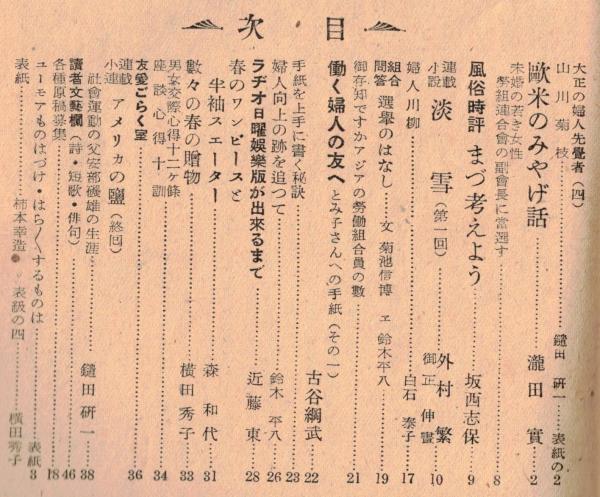 目次
大正の婦人先覺者（四）
山川菊枝……鑓田研一……表紙の2
歐米のみやげ話……瀧田實……2
未婚の若き女性
勞組連合會の副會長に當選す……8
風俗時評 まづ考えよう……坂西志保……9
連載小説 淡雪（第一回）……外村繁 御正伸畫……10
婦人川柳……白石泰子……17
組合問答 選擧のはなし……文 菊池信博 ヱ 鈴木平八……19
御存知ですかアジアの勞働組合員の數……21
働く婦人の友へとみ子さんへの手紙（その一）……古谷綱武……22
手紙を上手に書く秘訣……23
婦人向上の跡を追つて……鈴木平八……26
ラヂオ日曜娯樂版が出來るまで……近藤東……28
春のワンピースと
半袖スエーター……森和代……31
數々の春の贈物……横田秀子……33
男女交際心得十二ヶ條
座談心得十訓……34
友愛ごらく室……36
連載小説 アメリカの鹽（終回）
社會運動の父安部磯雄の生涯……鑓田研一……38
讀者文藝欄（詩・短歌・俳句）……46
各種原稿募集……18
ユーモアものはづけ・はら〳〵するものは……表紙3
表紙……柿本幸造●表紙の四……横田秀子